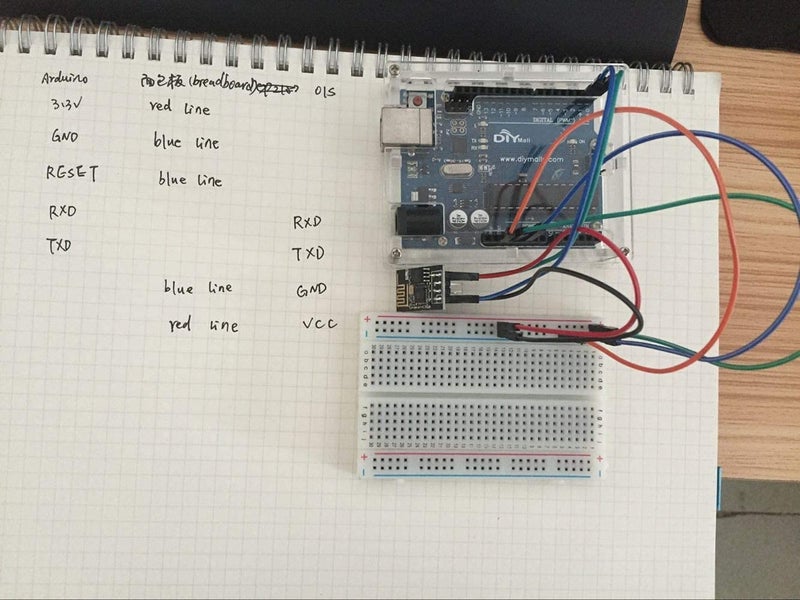 Arduino 面包板(breadboard) 01S
3.3V red line
GND blue line
RESET blue line
RXD RXD
TXD TXD
blue line GND
red line VCC
DIGITAL (PWM~)
DIY Mall
www.diymalls.com
TX
RX
ON
+
-
a b c d e
f g h i j
+
-